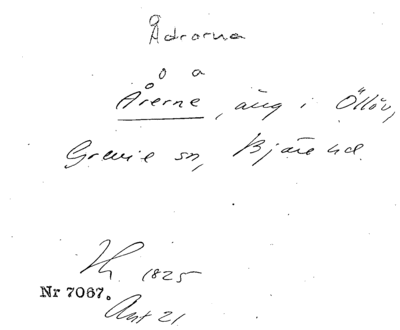 Ådrorna
o a
Årerne, äng i Öllöv,
Grevie sn, Bjäre hd.
1825
Nr 7067.
Akt 21